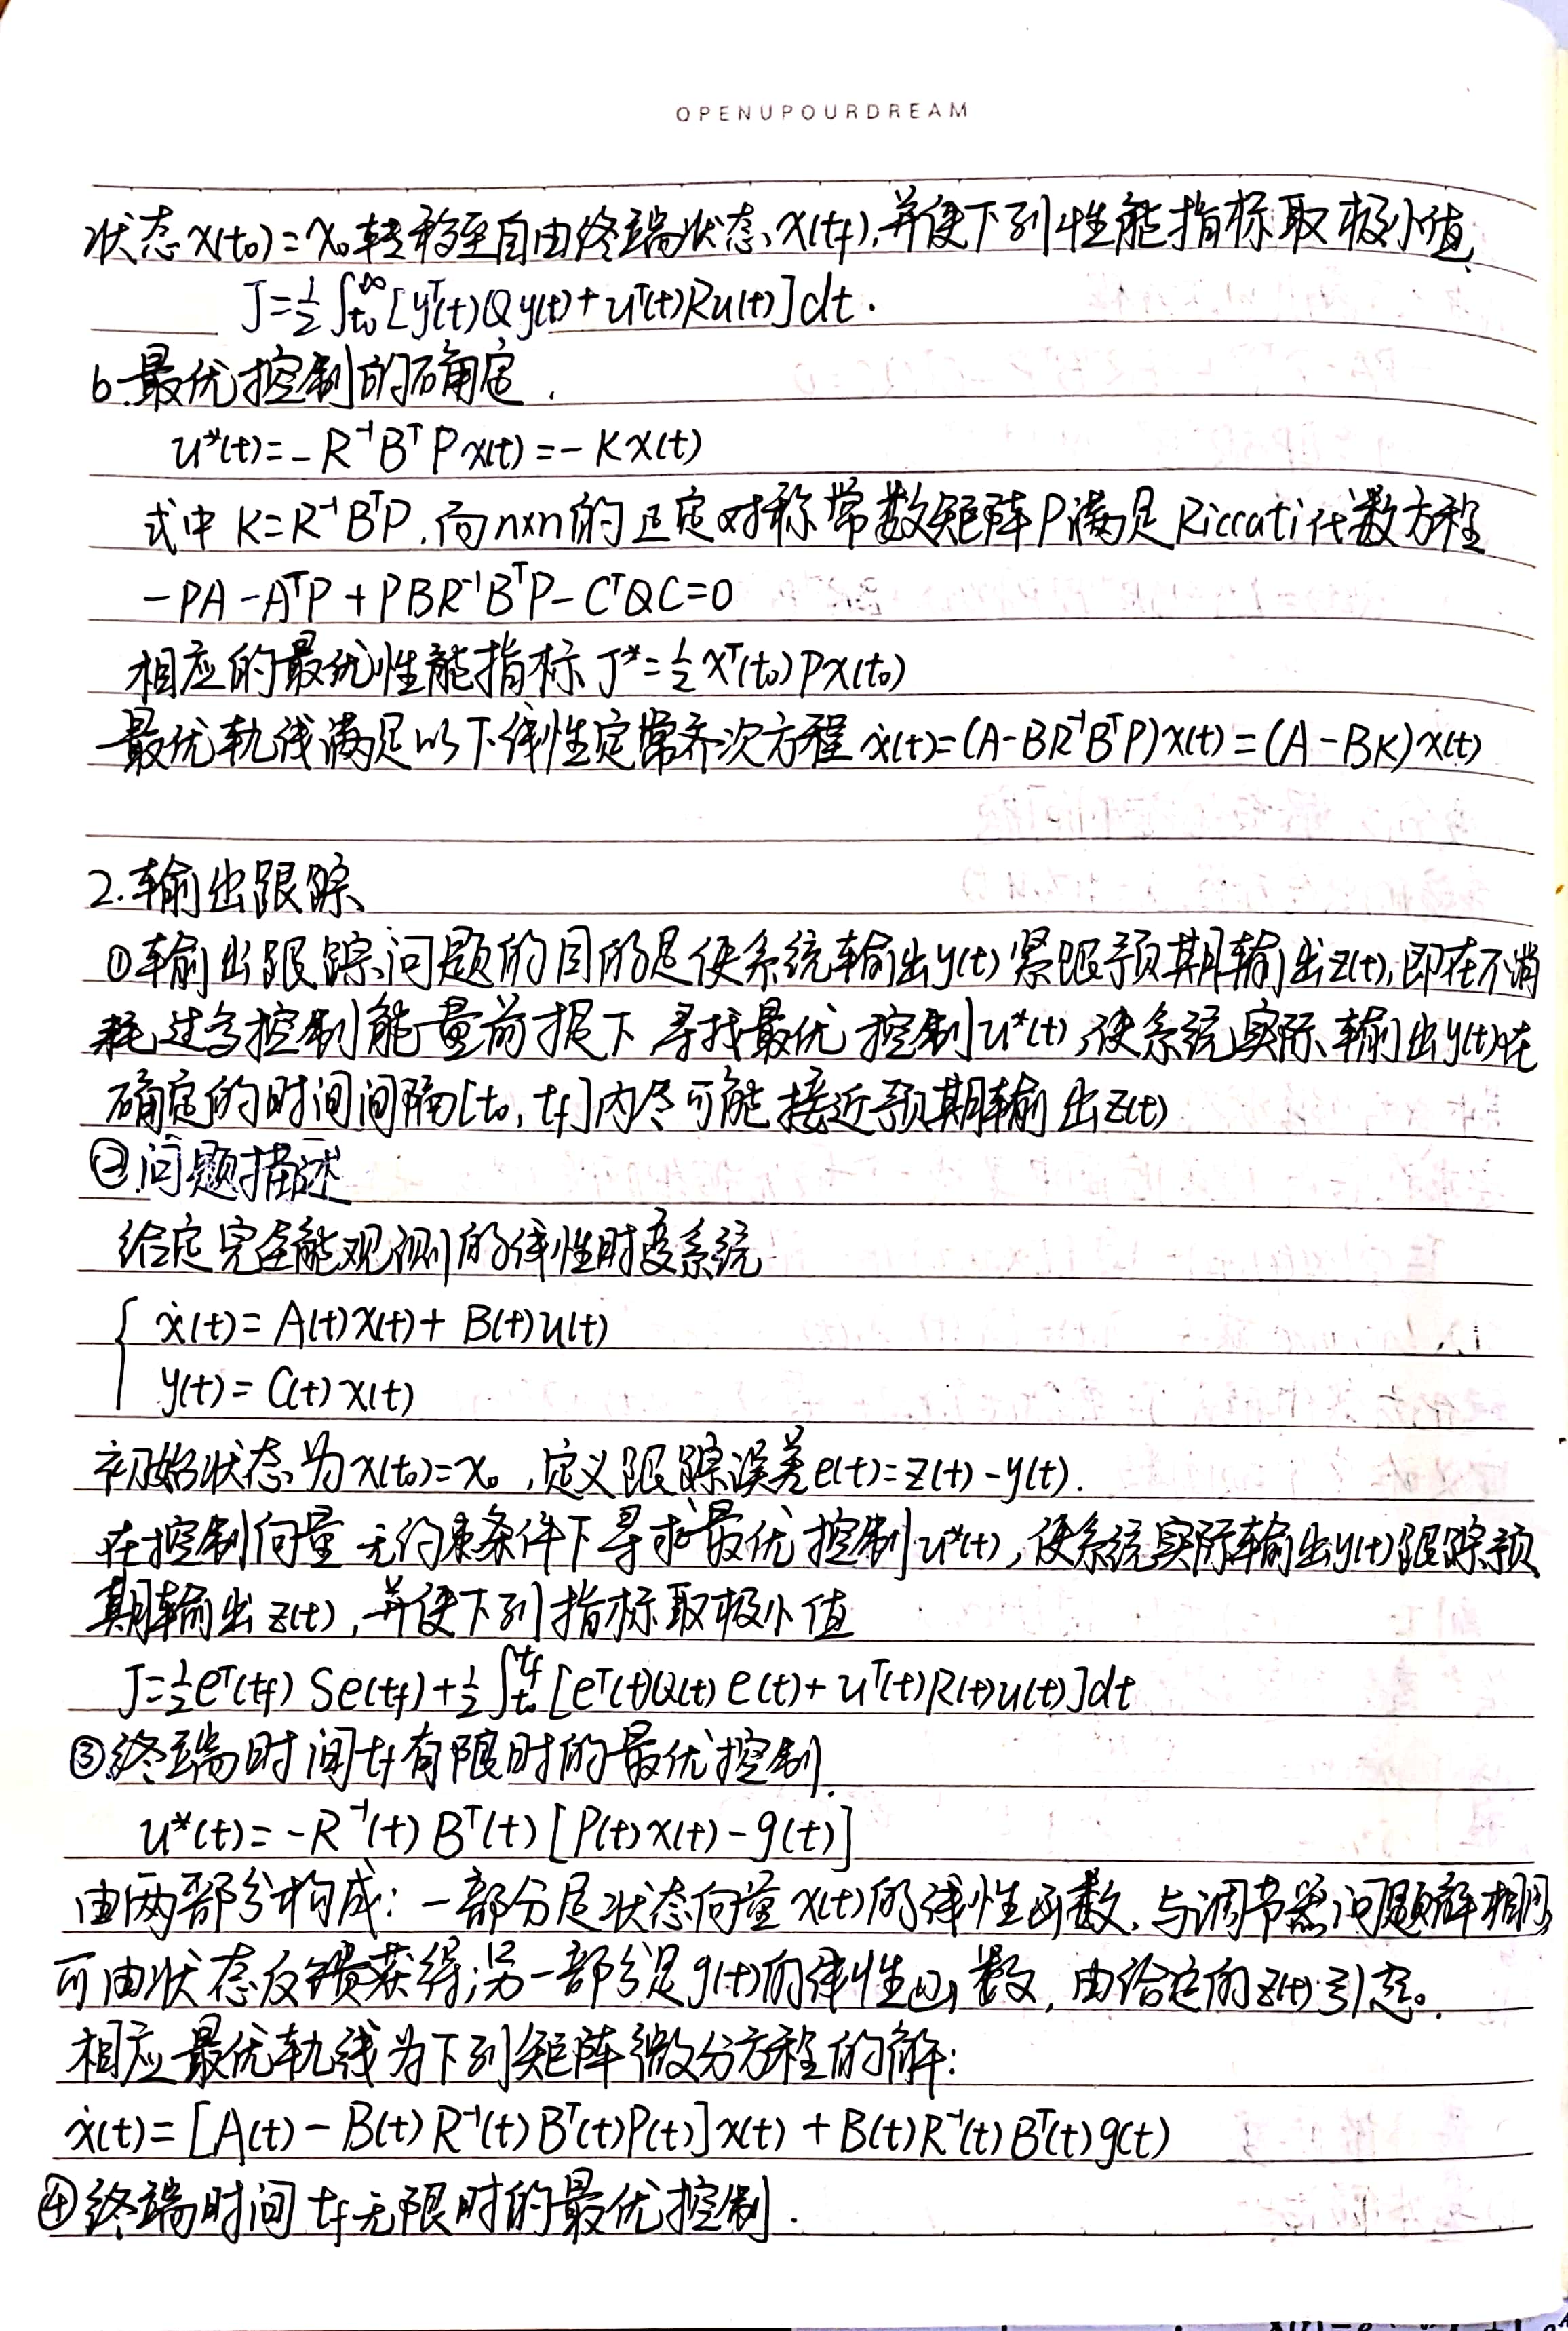 OPENUPOURDREAM
状态x(t₀)=x₀转移至自由终端状态x(tf),并使下列性能指标取极小值,
J=½∫t₀^∞[yᵀ(t)Qy(t)+uᵀ(t)Ru(t)]dt.
b.最优控制的确定.
u*(t)=-R⁻¹BᵀPx(t)=-Kx(t)
式中K=R⁻¹BᵀP,而n×n的正定对称常数矩阵P满足Riccati代数方程
-PA-AᵀP+PBR⁻¹BᵀP-CᵀQC=0
相应的最优性能指标J*=½xᵀ(t₀)Px(t₀)
最优轨线满足以下线性定常齐次方程ẋ(t)=(A-BR⁻¹BᵀP)x(t)=(A-BK)x(t)
2.输出跟踪
①输出跟踪问题的目的是使系统输出y(t)紧跟预期输出z(t),即在不消
耗过多控制能量前提下寻找最优控制u*(t),使系统实际输出y(t)在
确定的时间间隔[t₀,tf]内尽可能接近预期输出z(t)
②问题描述
给定完全能观测的线性时变系统
{ẋ(t)=A(t)x(t)+B(t)u(t)
y(t)=C(t)x(t)
初始状态为x(t₀)=x₀,定义跟踪误差e(t)=z(t)-y(t).
在控制向量无约束条件下寻求最优控制u*(t),使系统实际输出y(t)跟踪预
期输出z(t),并使下列指标取极小值
J=½eᵀ(tf)Se(tf)+½∫t₀^tf[eᵀ(t)Q(t)e(t)+uᵀ(t)R(t)u(t)]dt
③终端时间tf有限时的最优控制.
u*(t)=-R⁻¹(t)Bᵀ(t)[P(t)x(t)-g(t)]
由两部分构成:一部分是状态向量x(t)的线性函数,与调节器问题解相同,
可由状态反馈获得;另一部分是g(t)的线性函数,由给定的z(t)引起。
相应最优轨线为下列矩阵微分方程的解:
ẋ(t)=[A(t)-B(t)R⁻¹(t)Bᵀ(t)P(t)]x(t)+B(t)R⁻¹(t)Bᵀ(t)g(t)
④终端时间tf无限时的最优控制.